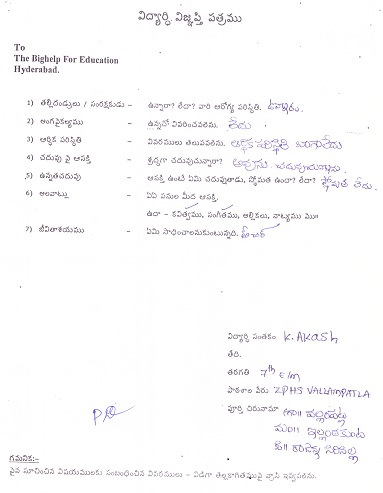 విద్యార్థి విజ్ఞప్తి పత్రము
To
The Bighelp For Education
Hyderabad.
1) తల్లిదండ్రులు / సంరక్షకుడు - ఉన్నారా? లేదా? వారి ఆరోగ్య పరిస్థితి. ఉన్నారు.
2) అంగవైకల్యము - ఉన్నచో వివరించవలెను. లేదు
3) ఆర్థిక పరిస్థితి - వివరములు తెలుపవలెను. ఆర్థిక పరిస్థితి బాగాలేదు
4) చదువు పై ఆసక్తి - శ్రద్ధగా చదువుచున్నారా? అవును చదువుచున్నాను.
5) ఉన్నతచదువు - ఆసక్తి ఉంటే ఏమి చదువుతాడు, స్తోమత ఉందా? లేదా? స్తోమత లేదు.
6) అలవాట్లు - ఏఏ పనుల మీద ఆసక్తి.
ఉదా - కవిత్వము, సంగీతము, అల్లికలు, నాట్యము మొ॥
7) జీవితాశయము - ఏమి సాధించాలనుకుంటున్నది. టీచర్
విద్యార్థి సంతకం K. Akash
తేది.
తరగతి 7th E/m
పాఠశాల పేరు ZPHS VALLAMPATLA
పూర్తి చిరునామా గ్రా॥ వల్లంపట్ల
మం॥ ఇల్లంతకుంట
జి॥ రాజన్న సిరిసిల్ల
గమనిక:-
పైన సూచించిన విషయములకు సంబంధించిన వివరములు - విడిగా తెల్లకాగితముపై వ్రాసి ఇవ్వవలెను.